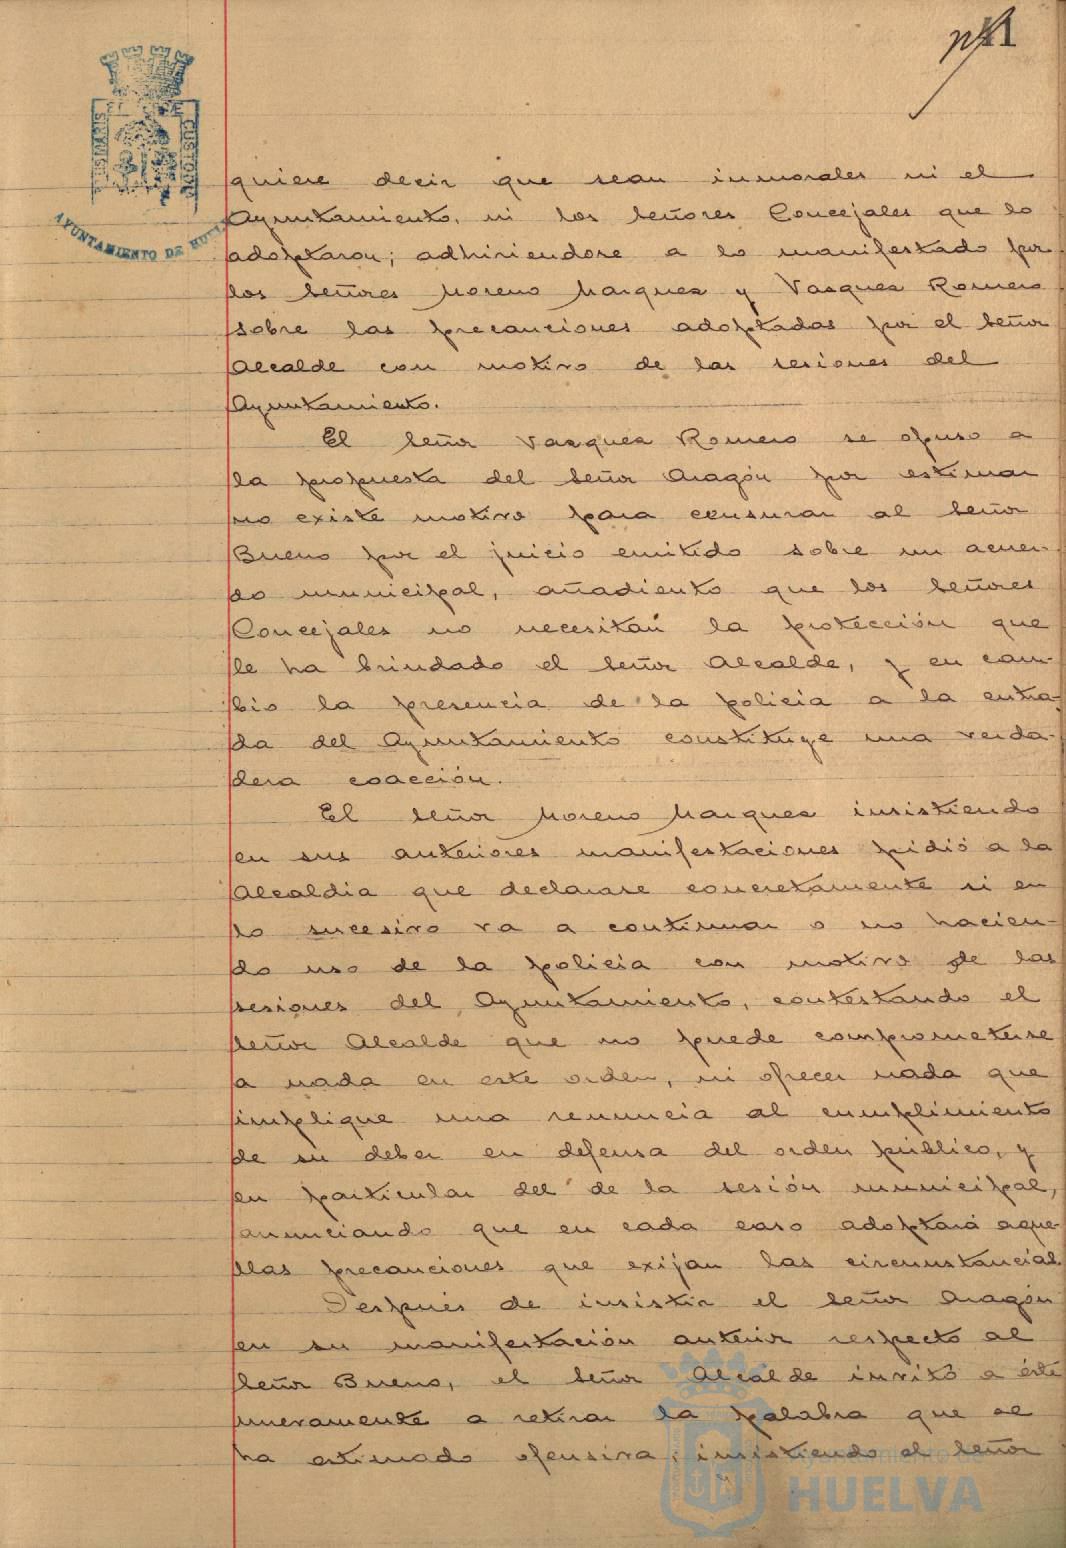 11
PORTUS MARIS ET TERRE CUSTODIA
AYUNTAMIENTO DE HUELVA
quiere decir que sean inmorales ni el
Ayuntamiento, ni los Señores Concejales que lo
adoptaron; adhiriendose a lo manifestado por
los Señores Moreno Marquez y Vazquez Romero
sobre las precauciones adoptadas por el Señor
Alcalde con motivo de las sesiones del
Ayuntamiento.
El Señor Vazquez Romero se opuso a
la propuesta del Señor Aragón por estimar
no existe motivo para censurar al Señor
Bueno por el juicio emitido sobre un acuer-
do municipal, añadiento que los Señores
Concejales no necesitan la protección que
le ha brindado el Señor Alcalde, y en cam-
bio la presencia de la policia a la entra-
da del Ayuntamiento constituye una verda-
dera coacción.
El Señor Moreno Marquez insistiendo
en sus anteriores manifestaciones pidió a la
Alcaldia que declarase concretamente si en
lo sucesivo va a continuar o no hacien-
do uso de la policia con motivo de las
sesiones del Ayuntamiento, contestando el
Señor Alcalde que no puede comprometerse
a nada en este orden, ni ofrecer nada que
implique una renuncia al cumplimiento
de su deber en defensa del orden público, y
en particular del de la sesión municipal,
anunciando que en cada caso adoptará aque-
llas precauciones que exijan las circunstancias.
Después de insistir el Señor Aragón
en su manifestación anterior respecto al
Señor Bueno, el Señor Alcalde invitó a éste
nuevamente a retirar la palabra que se
ha estimado ofensiva; insistiendo el Señor
Ayuntamiento de
HUELVA